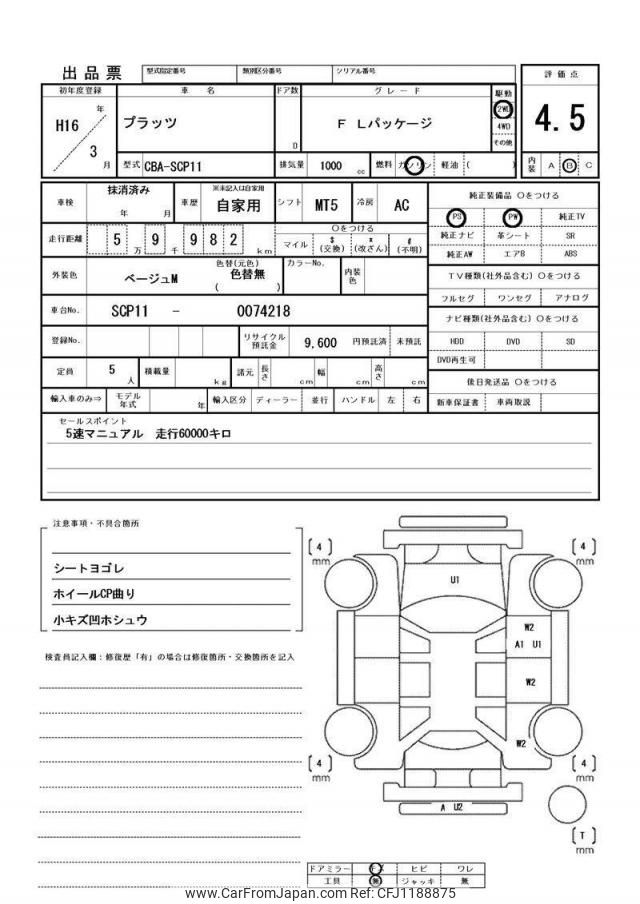 出品票
型式指定番号 類別区分番号 シリアル番号
評価点
初年度登録 車名 ドア数 グレード 駆動
H16 年 プラッツ F Lパッケージ 2WD
4.5
3 月 D 4WD
その他
型式 CBA-SCP11 排気量 1000 cc 燃料 ガソリン 軽油 ( )
内装 A B C
車検 抹消済み 年 月 車歴 ※未記入は自家用 自家用 シフト MT5 冷房 AC
純正装備品 〇をつける
PS PW 純正TV
走行距離 5 万 9 千 9 8 2 km 〇をつける
マイル $(交換) *(改ざん) #(不明)
純正ナビ 革シート SR
純正AW エアB ABS
外装色 ベージュM 色替(元色) 色替無 ( ) カラーNo. 内装色
TV種類(社外品含む) 〇をつける
フルセグ ワンセグ アナログ
車台No. SCP11 - 0074218
ナビ種類(社外品含む) 〇をつける
登録No. リサイクル預託金 9,600 円預託済 未預託
HDD DVD SD
DVD再生可
定員 5 人 積載量 kg 諸元 長さ cm 幅 cm 高さ cm
後日発送品 〇をつける
輸入車のみ⇒ モデル年式 年 輸入区分 ディーラー 並行 ハンドル 左 右
新車保証書 車両取説
セールスポイント
5速マニュアル 走行60000キロ
注意事項・不具合箇所
シートヨゴレ
ホイールCP曲り
小キズ凹ホシュウ
検査員記入欄:修復歴「有」の場合は修復箇所・交換箇所を記入
[4] mm
[4] mm
U1
W2
A1 U1
W2
W2
[4] mm
[4] mm
A U2
[T] mm
ドアミラー ヒビ ワレ
工具 無 ジャッキ 無
www.CarFromJapan.com Ref: CFJ1188875